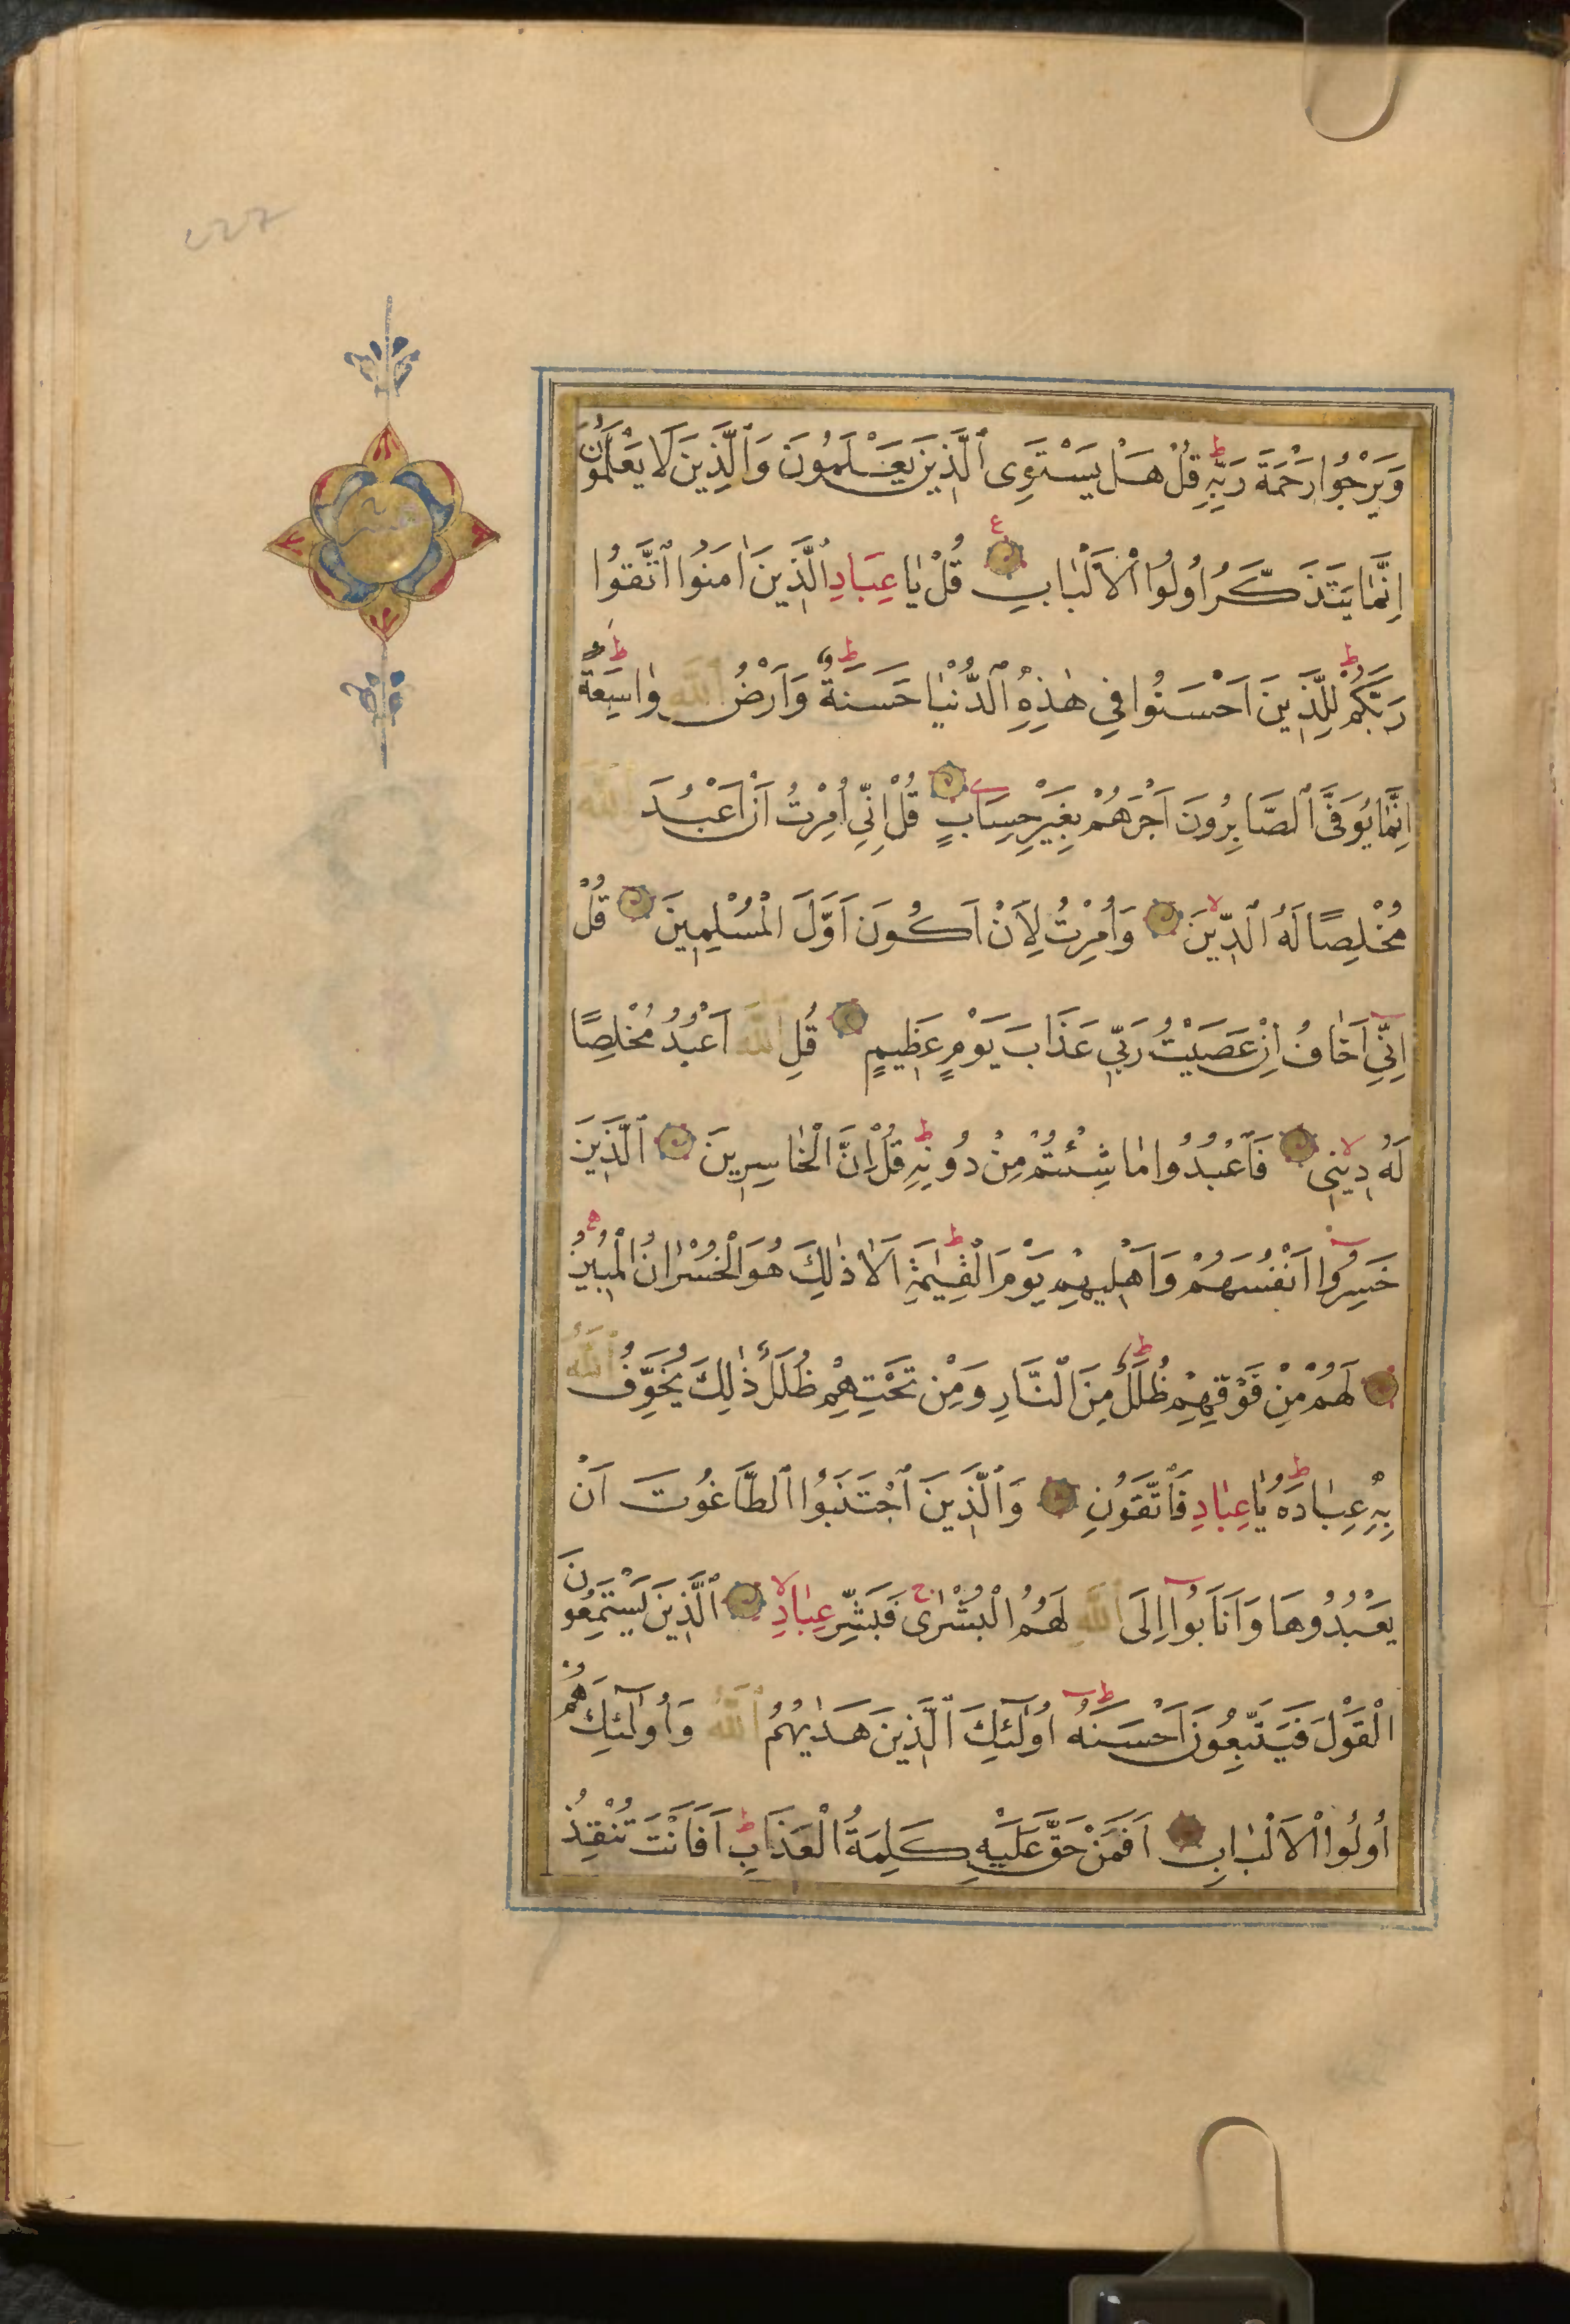 وَيَرْجُوا رَحْمَةَ رَبِّهِ قُلْ هَلْ يَسْتَوِى ٱلَّذِينَ يَعْلَمُونَ وَٱلَّذِينَ لَا يَعْلَمُونَ
اِنَّمَا يَتَذَكَّرُ اُولُوا الْاَلْبَابِ قُلْ يَا عِبَادِ الَّذِينَ اٰمَنُوا اتَّقُوا
رَبَّكُمْ لِلَّذِينَ اَحْسَنُوا فِي هٰذِهِ الدُّنْيَا حَسَنَةٌ وَاَرْضُ اللّٰهِ وَاسِعَةٌ
اِنَّمَا يُوَفَّى الصَّابِرُونَ اَجْرَهُمْ بِغَيْرِ حِسَابٍ قُلْ اِنِّي اُمِرْتُ اَنْ اَعْبُدَ اللّٰهَ
مُخْلِصًا لَهُ الدِّينَ وَاُمِرْتُ لِاَنْ اَكُونَ اَوَّلَ الْمُسْلِمِينَ قُلْ
اِنِّي اَخَافُ اِنْ عَصَيْتُ رَبِّي عَذَابَ يَوْمٍ عَظِيمٍ قُلِ اللّٰهَ اَعْبُدُ مُخْلِصًا
لَهُ دِينِي فَاعْبُدُوا مَا شِئْتُمْ مِنْ دُونِهِ قُلْ اِنَّ الْخَاسِرِينَ الَّذِينَ
خَسِرُوا اَنْفُسَهُمْ وَاَهْلِيهِمْ يَوْمَ الْقِيٰمَةِ اَلَا ذٰلِكَ هُوَ الْخُسْرَانُ الْمُبِينُ
لَهُمْ مِنْ فَوْقِهِمْ ظُلَلٌ مِنَ النَّارِ وَمِنْ تَحْتِهِمْ ظُلَلٌ ذٰلِكَ يُخَوِّفُ اللّٰهُ
بِهِ عِبَادَهُ يَا عِبَادِ فَاتَّقُونِ وَالَّذِينَ اجْتَنَبُوا الطَّاغُوتَ اَنْ
يَعْبُدُوهَا وَاَنَابُوا اِلَى اللّٰهِ لَهُمُ الْبُشْرٰى فَبَشِّرْ عِبَادِ الَّذِينَ يَسْتَمِعُونَ
الْقَوْلَ فَيَتَّبِعُونَ اَحْسَنَهُ اُولٰئِكَ الَّذِينَ هَدٰيهُمُ اللّٰهُ وَاُولٰئِكَ هُمْ
اُولُوا الْاَلْبَابِ اَفَمَنْ حَقَّ عَلَيْهِ كَلِمَةُ الْعَذَابِ اَفَاَنْتَ تُنْقِذُ